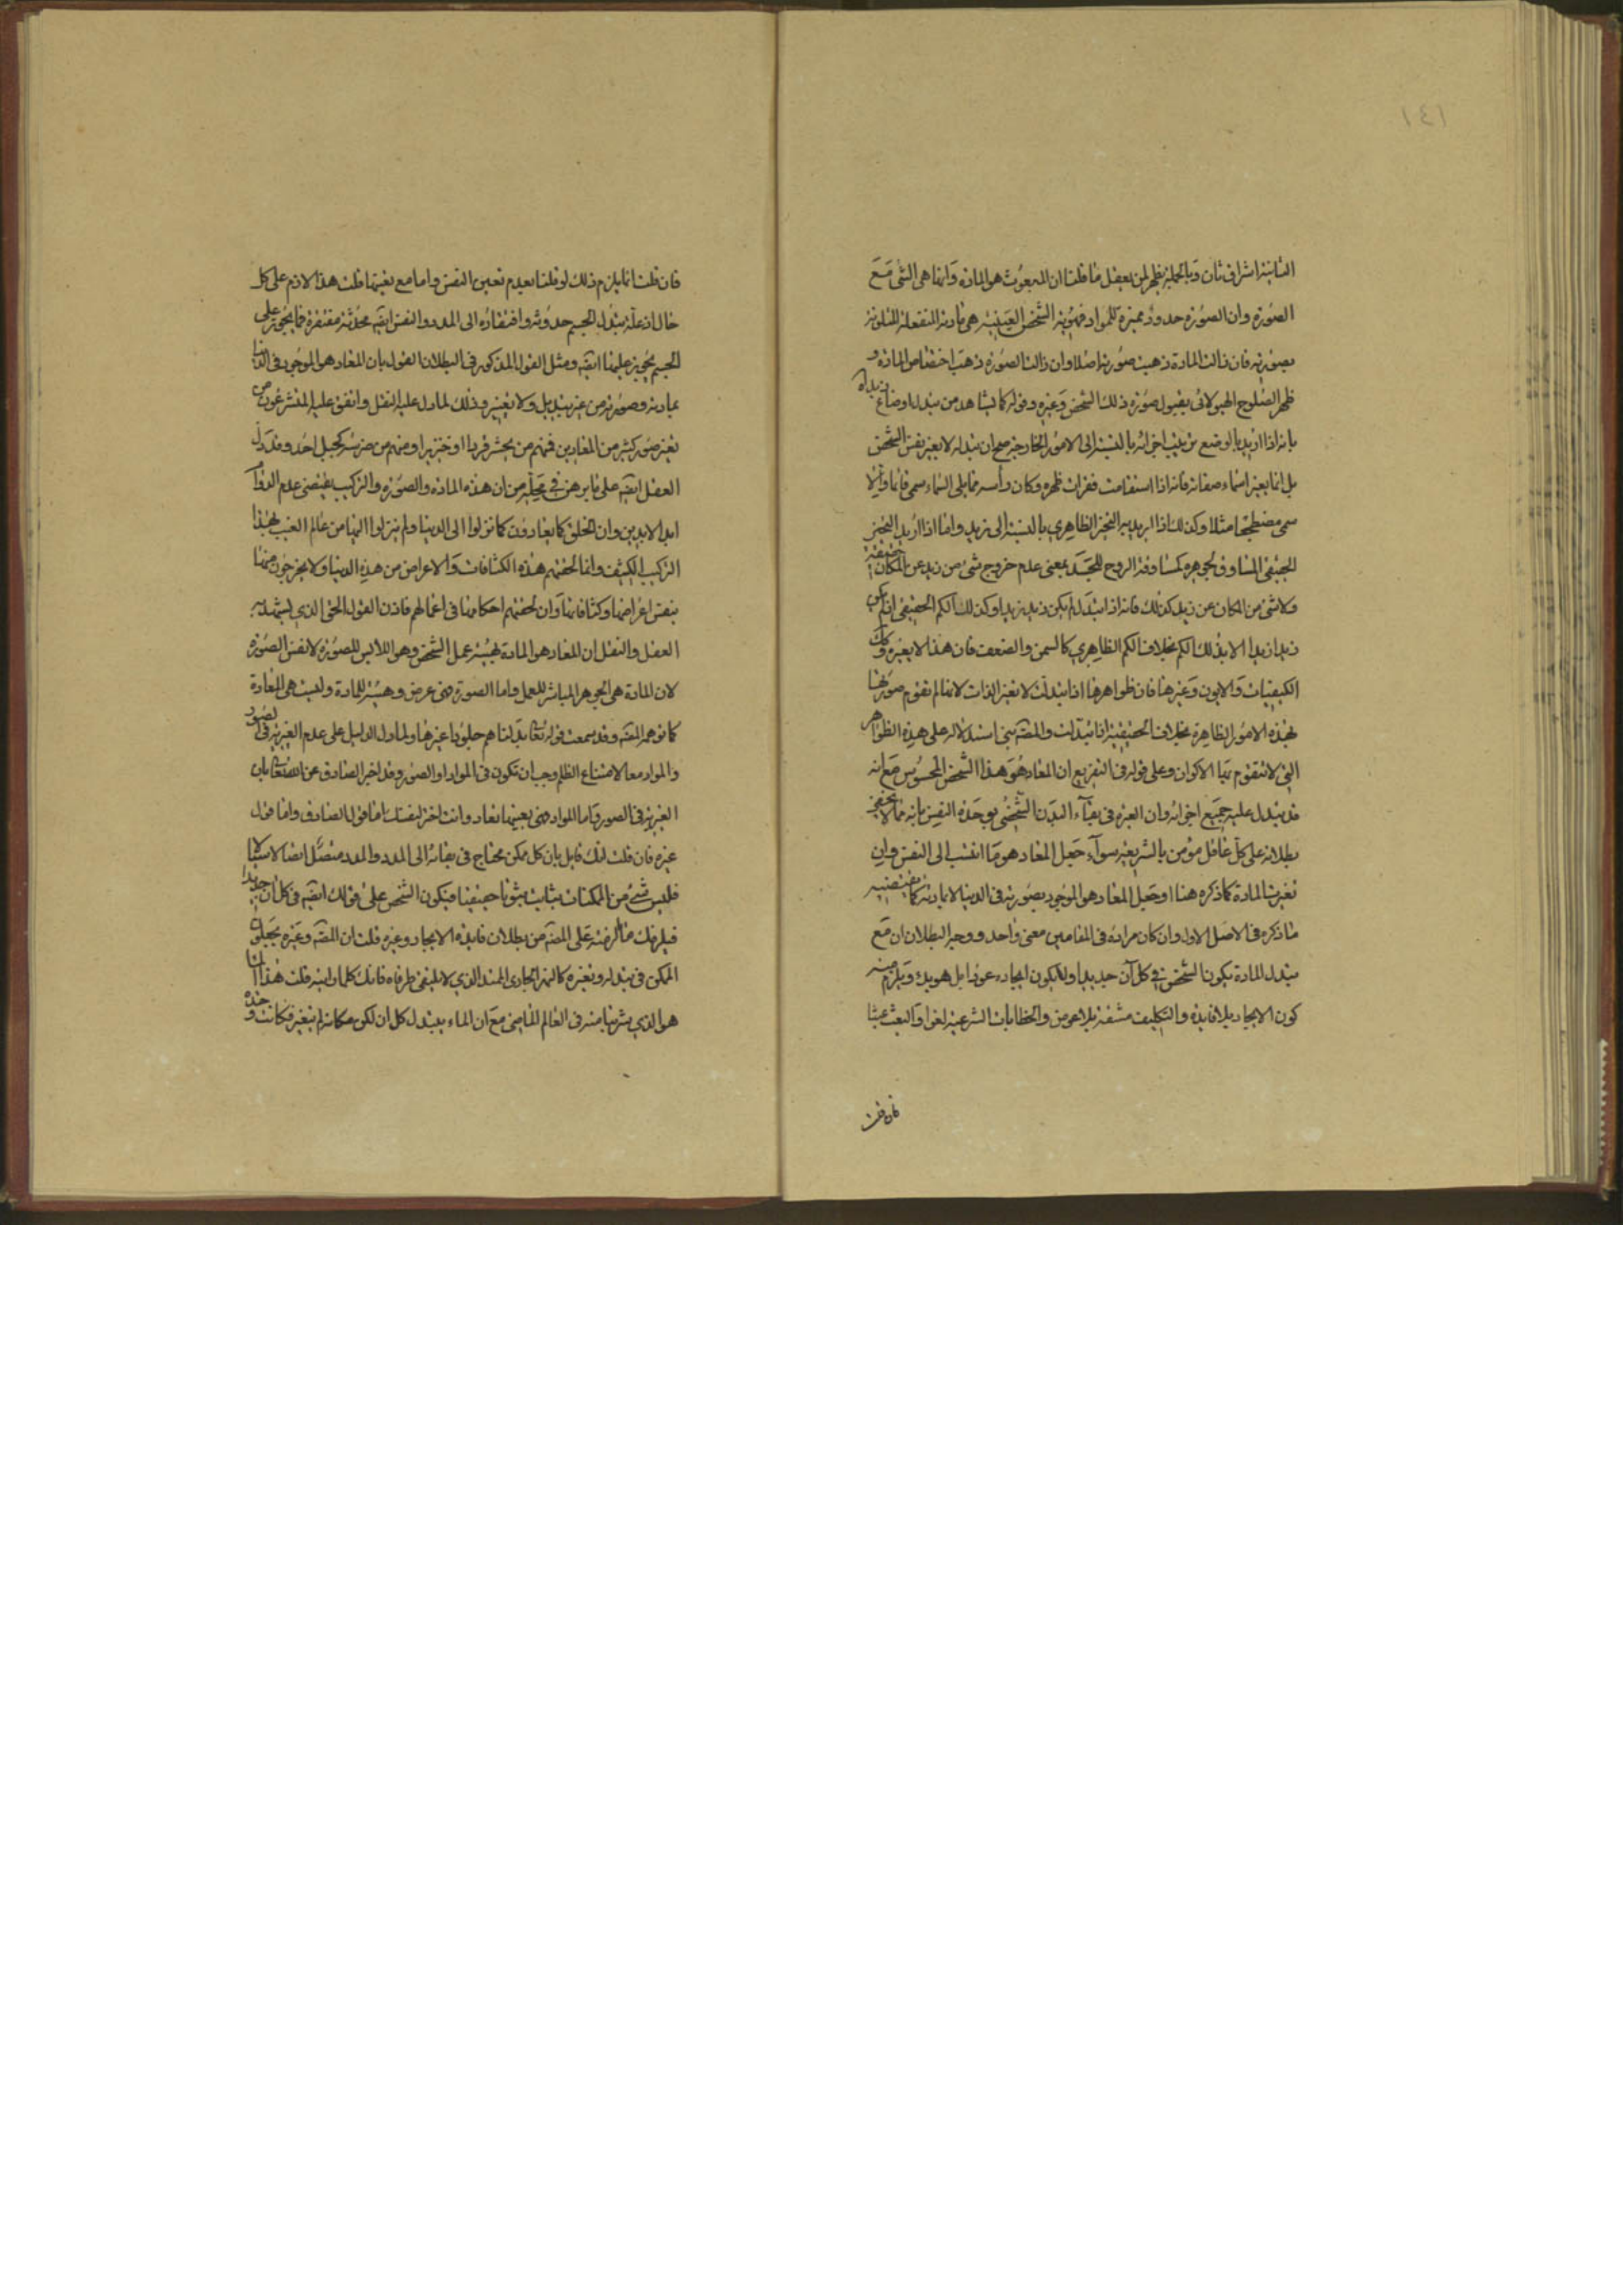 ١٤١
الثانية اشراق ثان وبالجملة يظهر لمن يعقل ما قلنا ان المبعوث هو المادة وانما هى الشئ مع
الصورة وان الصورة حدود مميزة للمواد فهوية الشخص العينية هى مادته المنفعلة المتلونة
بصورته فان زالت المادة ذهبت صورتها اصلا وان زالت الصورة ذهب اختصاص المادة و
ظهر الصلوح الهيولانى بقبول صورة ذلك الشخص وغيره وقوله كما يشاهد من تبدل اوضاع زيد اه
بانه اذا اريد بالوضع ترتيب اجزائه بالنسبة الى الامور الخارجية صح ان تبدله لا يغير نفس الشخص
بل انما يغير اسماء صفاته فانه اذا استقامت فقرات ظهره وكان رأسه مما يلى السماء سمى قائما والا
سمى مضطجعا مثلا وكذلك اذا اريد به التحيز الظاهرى بالنسبة الى زيد واما اذا اريد التحيز
الحقيقى المساوق لجوهره كمساوقة الروح للجسد بمعنى عدم خروج شئ من زيد عن المكان حقيقة
ولا شئ من المكان عن زيد كذلك فانه اذا تبدل لم يكن زيد زيدا وكذلك الكم الحقيقى اذ لم يكن
زيد زيدا الا بذلك الكم بخلاف الكم الظاهرى كالسمن والضعف فان هذا لا يغيره وكذلك
الكيفيات والايون وغيرها فان ظواهرها اذا تبدلت لا تغير الذات لانها لم تقوم صورتها
بهذه الامور الظاهرة بخلاف الحقيقية اذا تبدلت والمصنف بنى استدلاله على هذه الظواهر
التى لا تتقوم بها الاكوان وعلى قوله فى التفريع ان المعاد هو هذا الشخص المحسوس مع انه
قد تبدل عليه جميع اجزائه وان العبرة فى بقاء البدن الشخصى بوحدة النفس بانه مما لا يخفى
بطلانه على كل عاقل مؤمن بالشريعة سواء جعل المعاد هو ما انتسب الى النفس وان
تغيرت المادة كما ذكره هنا او جعل المعاد هو الموجود بصورته فى الدنيا لا بمادته كما يقتضيه
ما ذكره فى الاصل الاول وان كان مراده فى المقامين معنى واحد ووجه البطلان ان مع
تبدل المادة يكون الشخص فى كل آن جديدا ولا يكون ايجاده عودا بل هو بدء ويلزم منه
كون الايجاد بلا فائدة والتكليف مشقة بلا عوض والخطابات الشرعية لغوا والبعث عبثا
فان قلت
فان قلت انما يلزم ذلك لو قلنا بعدم تعين النفس واما مع تعينها قلت هذا لازم على كل
حال اذ علة تبدل الجسم حدوثه وافتقاره الى المدد والنفس ايضا محدثة مفتقرة فما يجوز على
الجسم يجوز عليها ايضا ومثل القول المذكور فى البطلان القول بان المعاد هو الموجود فى الدنيا
بمادته وصورته من غير تبديل ولا تغيير وذلك لما دل عليه النقل واتفق عليه المتشرعون من
تغير صور كثير من المعادين فمنهم من يحشر قردا او خنزيرا ومنهم من ضرسه كجبل احد وقد دل
العقل ايضا على ما برهن فى محله من ان هذه المادة والصورة والتركيب يقتضى عدم الدوام
ابد الابدين وان الخلق كما يعادون كما نزلوا الى الدنيا ولم ينزلوا اليها من عالم الغيب بهذا
التركيب الكثيف وانما لحقتهم هذه الكثافات والاعراض من هذه الدنيا ولا يخرجون منها
بنفس اعراضها وكثافاتها وان لحقتهم احكامها فى اعمالهم فاذن القول الحق الذى يشهد به
العقل والنقل ان المعاد هو المادة بهيئة عمل الشخص وهو اللابس للصورة لا نفس الصورة
لان المادة هى الجوهر المباشر للعمل واما الصورة فهى عرض وهيئة للمادة وليست هى المعادة
كما توهم المصنف وقد سمعت قوله تعالى بدلناهم جلودا غيرها ولما دل الدليل على عدم الغيرية فى الصور
والمواد معا لامتناع الظلم وجب ان تكون فى المواد او الصور وقد اخبر الصادق عن الله تعالى بان
الغيرية فى الصور واما المواد فهى بعينها تعاد وانت اختر لنفسك اما قول الصادق واما قول
غيره فان قلت انك قايل بان كل ممكن محتاج فى بقائه الى المدد والمدد متصل اتصالا سيالا
فليس شئ من الممكنات بثابت ثبوتا حقيقيا فيكون الشخص على قولك ايضا فى كل ان جديدا
فيلزمك ما الزمته على المصنف من بطلان فايدة الايجاد وغيره قلت ان المصنف وغيره يجعلون
الممكن فى تبدله وتغيره كالنهر الجارى الممتد الذى لا يلتقى طرفاه فانك كلما رايته قلت هذا الماء
هو الذى شربنا منه فى العام الماضى مع ان الماء يتبدل كل ان لكن مكانه لم يتغير فكانت وحدة